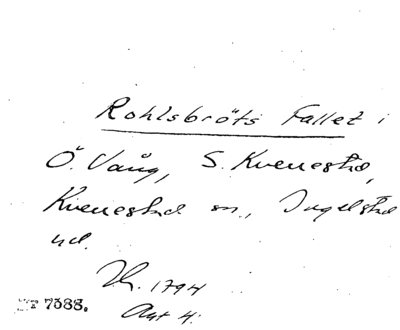 Rohlsbröts Fallet i
Ö. Vång, S. Kvenestad,
Kvenestad sn., Ingelstad
hd.
Lh. 1794
Akt 4.
7388.